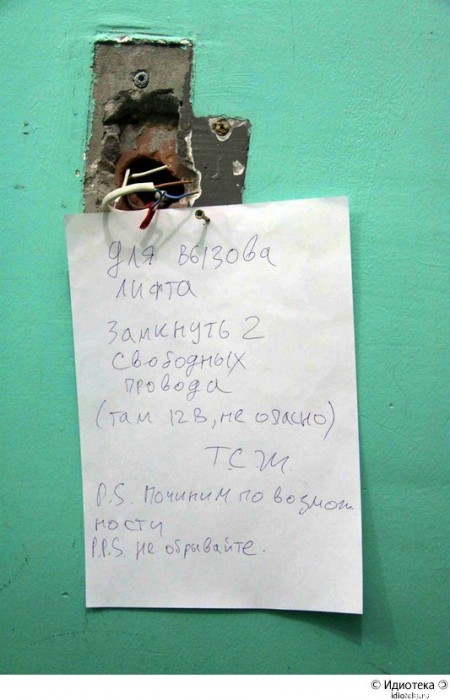 для вызова
лифта
Замкнуть 2
свободных
провода
(там 12В, не опасно)
Т.С.Ж.
P.S. Починим по возмож
ности
P.P.S. не обрывайте.
© Идиотека
idioteka.ru